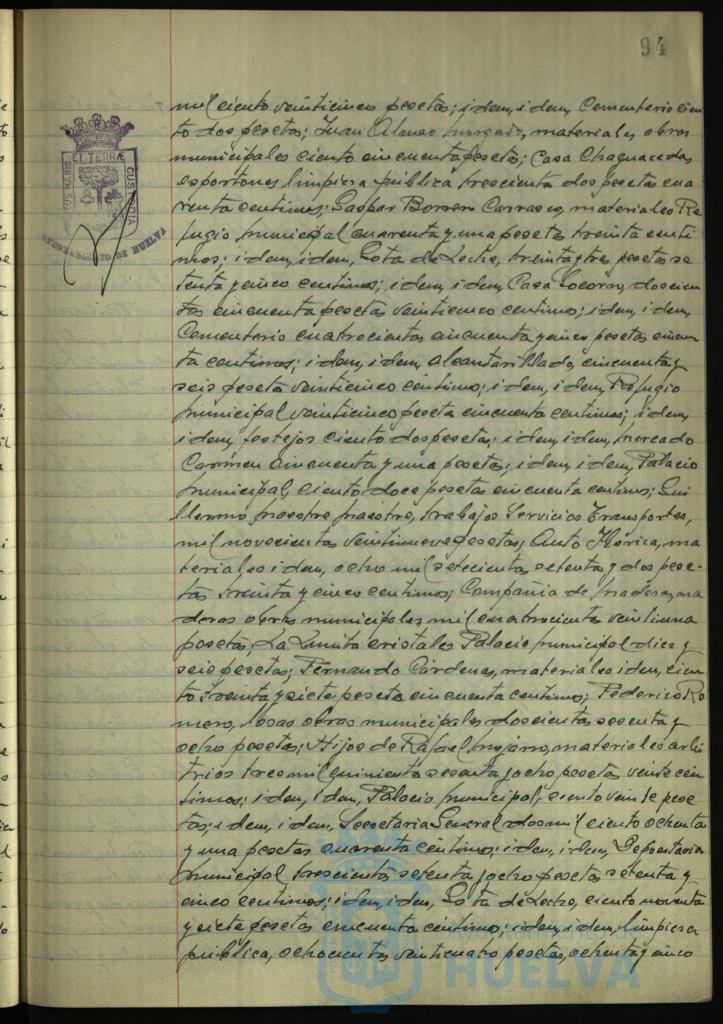 94
mil ciento veinticinco pesetas; idem, idem, Cementerio cien
to dos pesetas; Juan Alonso Morgado, materiales obras
municipales ciento cincuenta pesetas; Casa Chaguaceda,
esportones limpieza pública trescientas dos pesetas cua
renta centimos; Gaspar Borrero Carrasco, materiales Re
fugio municipal cuarenta y una pesetas treinta centi
mos; idem, idem, Gota de Leche, treinta y tres pesetas se
tenta y cinco centimos; idem, idem Casa Socorro, doscien
tas cincuenta pesetas veinticinco centimos; idem, idem,
Cementerio cuatrocientas cincuenta y cinco pesetas cincuen
ta centimos; idem, idem, alcantarillado, cincuenta y
seis pesetas veinticinco centimos; idem, idem, Refugio
municipal veinticinco pesetas cincuenta centimos; idem,
idem, festejos ciento dos pesetas; idem, idem, mercado
Carmen cincuenta y una pesetas; idem, idem, Palacio
municipal, ciento doce pesetas cincuenta centimos; Gui
llermo Maestre Maestre, trabajos Servicios Transportes,
mil novecientas veintinueve pesetas; Auto Ibérica, ma
teriales idem, ocho mil setecientas setenta y dos pese-
tas treinta y cinco centimos; Compañia de maderas, ma
deras obras municipales mil cuatrocientas veintiuna
pesetas; La cristales Palacio municipal diez y
seis pesetas; Fernando Cárdenas, materiales idem, cien
to treinta y siete pesetas cincuenta centimos; Federico Ro
mero, losas obras municipales doscientas sesenta y
ocho pesetas; Hijos de Rafael Mojarro, materiales arbi
trios tres mil quinientas sesenta y ocho pesetas veinte cen
timos; idem, idem, Palacio municipal, ciento veinte pese
tas; idem, idem, Secretaria General dos mil ciento ochenta
y una pesetas cuarenta centimos; idem, idem, Depositaria
municipal trescientas setenta y ocho pesetas setenta y
cinco centimos; idem, idem, Gota de Leche, ciento noventa
y siete pesetas cincuenta centimos; idem, idem, limpieza
pública, ochocientas veinticuatro pesetas, ochenta y cinco
ET TERRÆ
CUSTODIA
AYUNTAMIENTO DE HUELVA
HUELVA